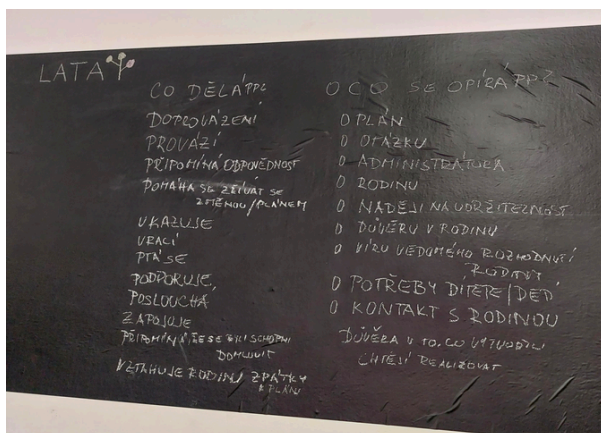 LATA
CO DĚLÁ PP?
DOPROVÁZENÍ
PROVÁZÍ
PŘIPOMÍNÁ ODPOVĚDNOST
POMÁHÁ SE SŽÍVAT SE
ZMĚNOU/PLÁNEM
UKAZUJE
VRACÍ
PTÁ SE
PODPORUJE
POSLOUCHÁ
ZAPOJUJE
PŘIPOMÍNÁ, ŽE SE SCHOPNI
DOMLUVIT
VZTAHUJE RODINU ZPÁTKY
K PLÁNU
O CO SE OPÍRÁ PP?
O PLÁN
O OTÁZKU
O ADMINISTRÁTORA
O RODINU
O NADĚJI NA UDRŽITELNOST
O DŮVĚRU V RODINU
O VÍRU VĚDOMÉHO ROZHODNUTÍ
RODINY
O POTŘEBY DÍTĚTE/DĚTÍ
O KONTAKT S RODINOU
DŮVĚRA V TO, CO VYTVOŘILI
CHTĚJÍ REALIZOVAT